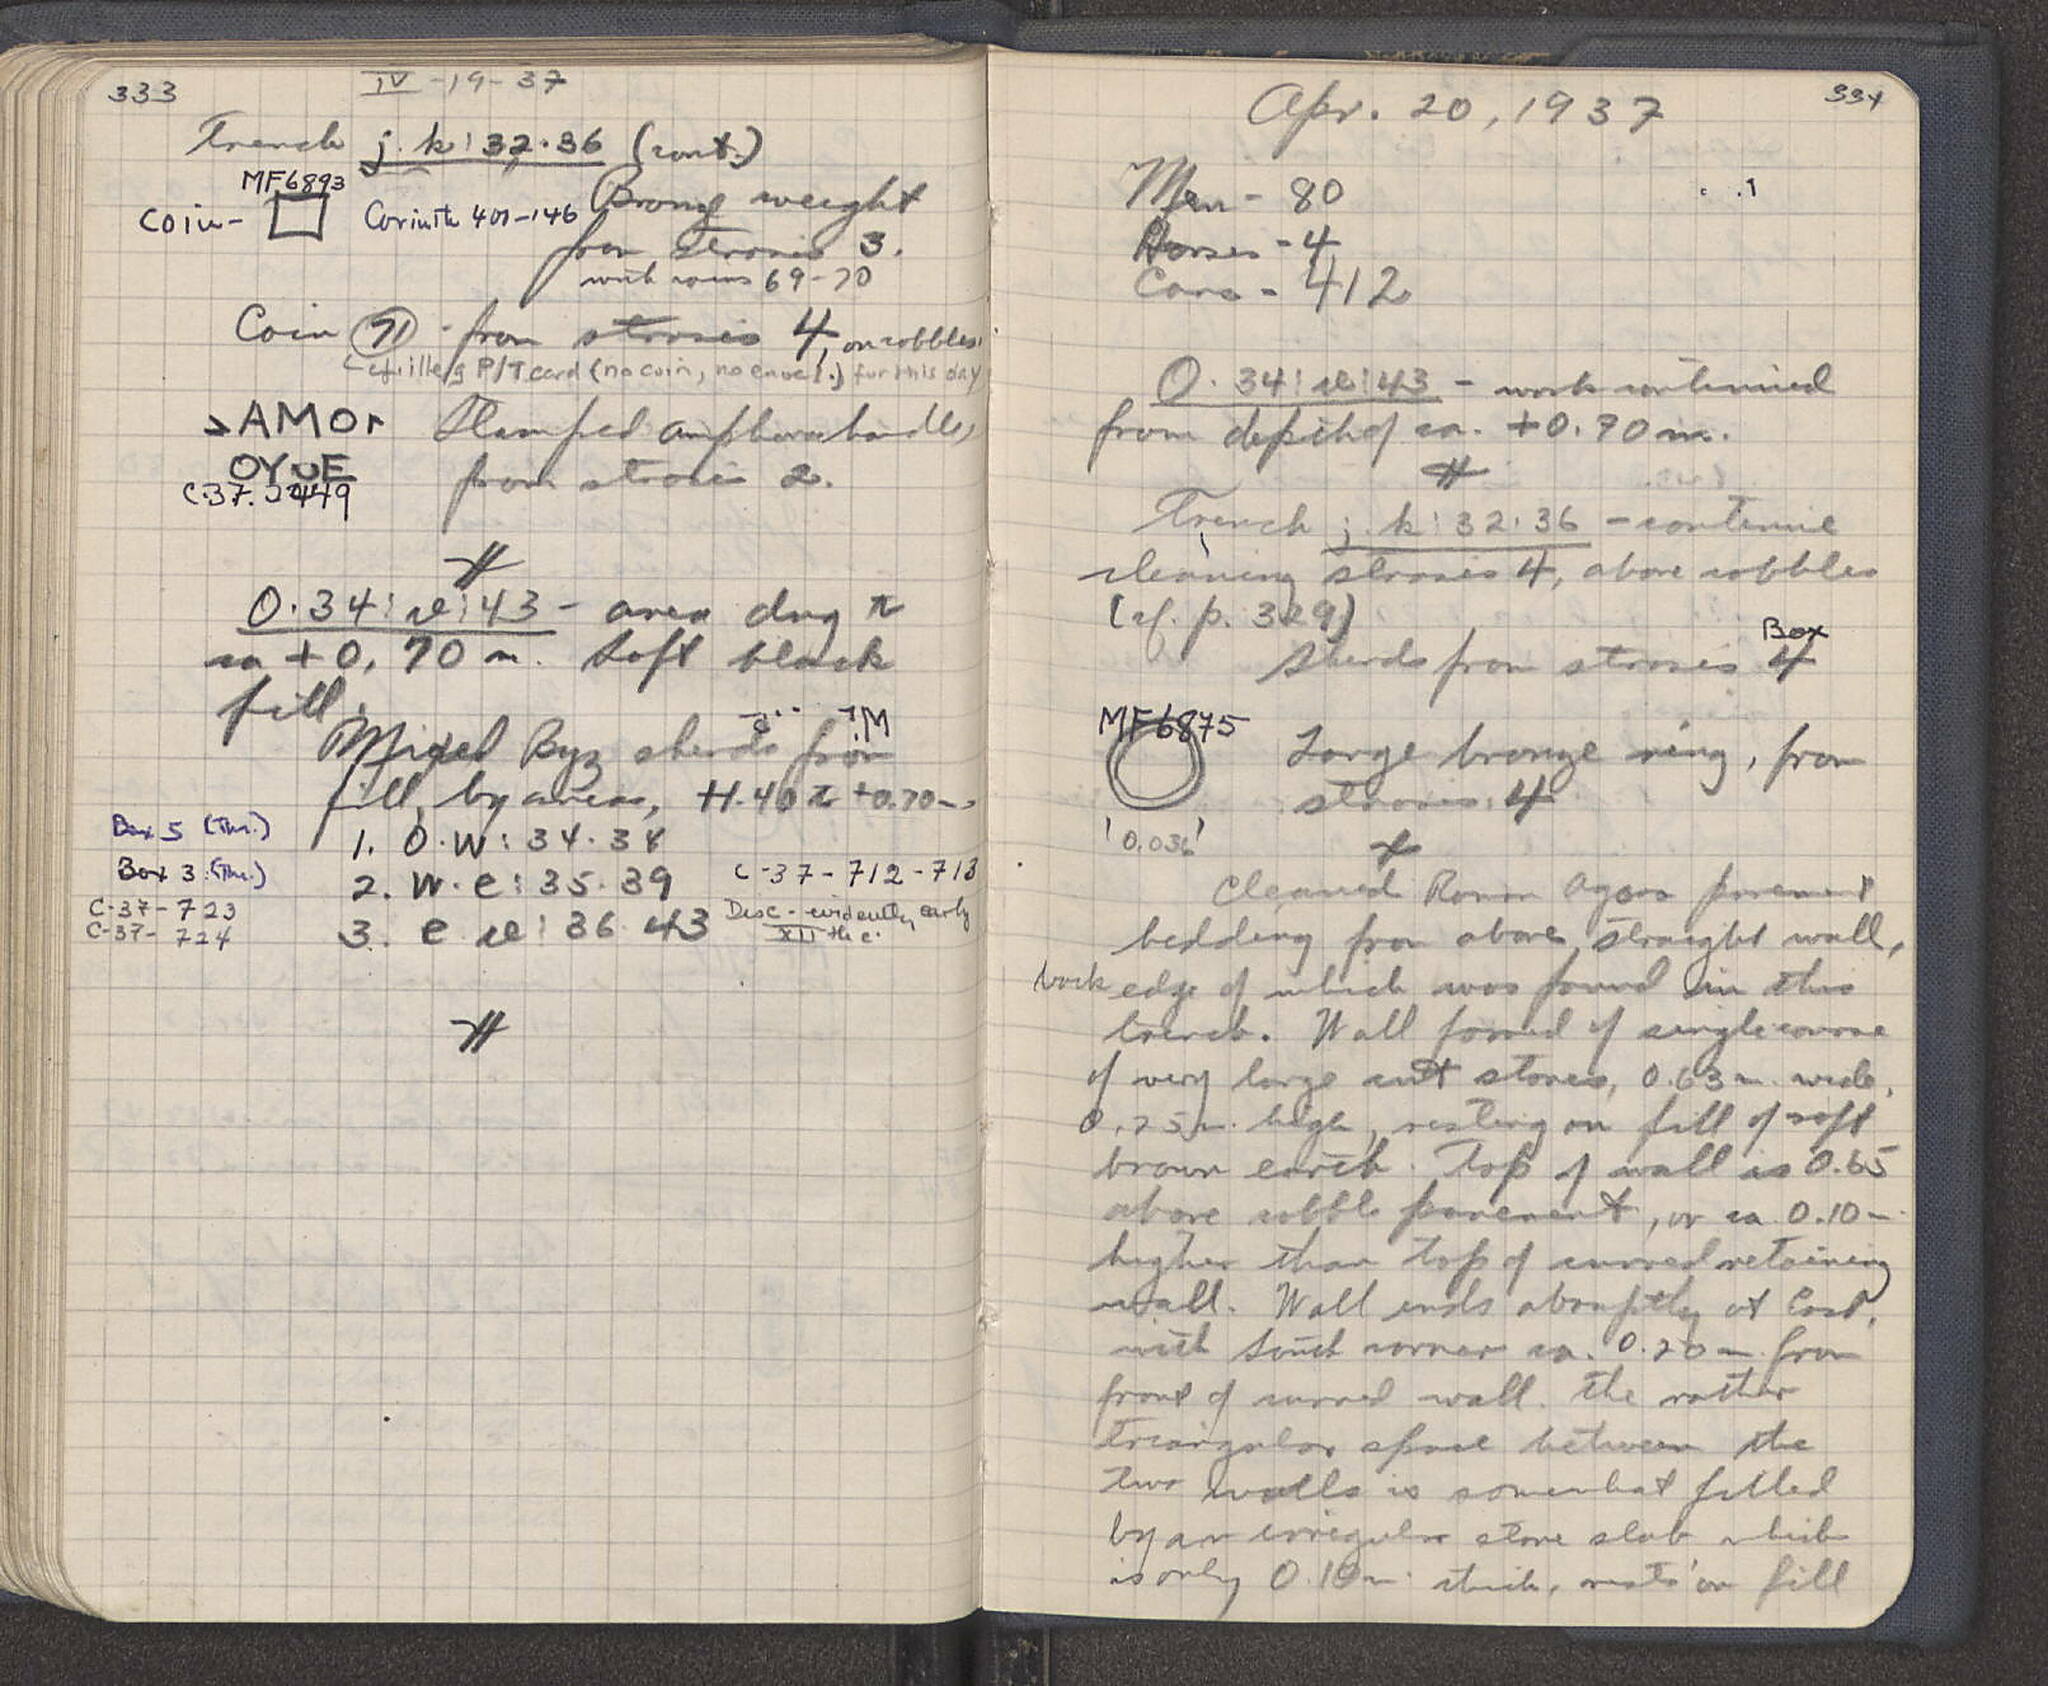 333
IV-19-37
Trench j.k:32.36 (cont.)
MF6893
Coin- Corinth 401-146
Bronze weight
from strosis 3.
with coins 69-70
Coin 71 - from strosis 4, on cobbles.
P/T card (no coin, no envel.) for this day
AMO
Stamped amphora handle,
from strosis 2.
C.37.2449
O.34:ω:43 - area dug to
ca +0.70 m. Soft black
fill.
Mixed Byz sherds from
fill, by areas, +1.40 to +0.70 m.
Box 5 (Thr.)
1. O.W: 34.38
Box 3 (Thr.)
2. W.e: 35.39
C-37-712-713
C-37-723
C-37-724
3. e.ω: 36.43
Disc - evidently early
XII th c.
334
Apr. 20, 1937
Men - 80
Horses - 4
Cars - 412
O.34:ω:43 - work continued
from depth of ca. +0.70 m.
Trench j.k:32.36 - continue
cleaning strosis 4, above cobbles
(cf. p. 329)
Box
Sherds from strosis 4
MF6875
Large bronze ring, from
strosis 4
0.036
Cleaned Roman Agora pavement
bedding from above straight wall,
back edge of which was found in this
trench. Wall formed of single course
of very large cut stones, 0.63 m. wide,
0.25 m. high, resting on fill of soft
brown earth. Top of wall is 0.65
above cobble pavement, or ca 0.10 m
higher than top of curved retaining
wall. Wall ends abruptly at East,
with South corner ca. 0.20 m from
front of curved wall. The rather
triangular space between the
two walls is somewhat filled
by an irregular stone slab which
is only 0.10 m. thick, rests on fill